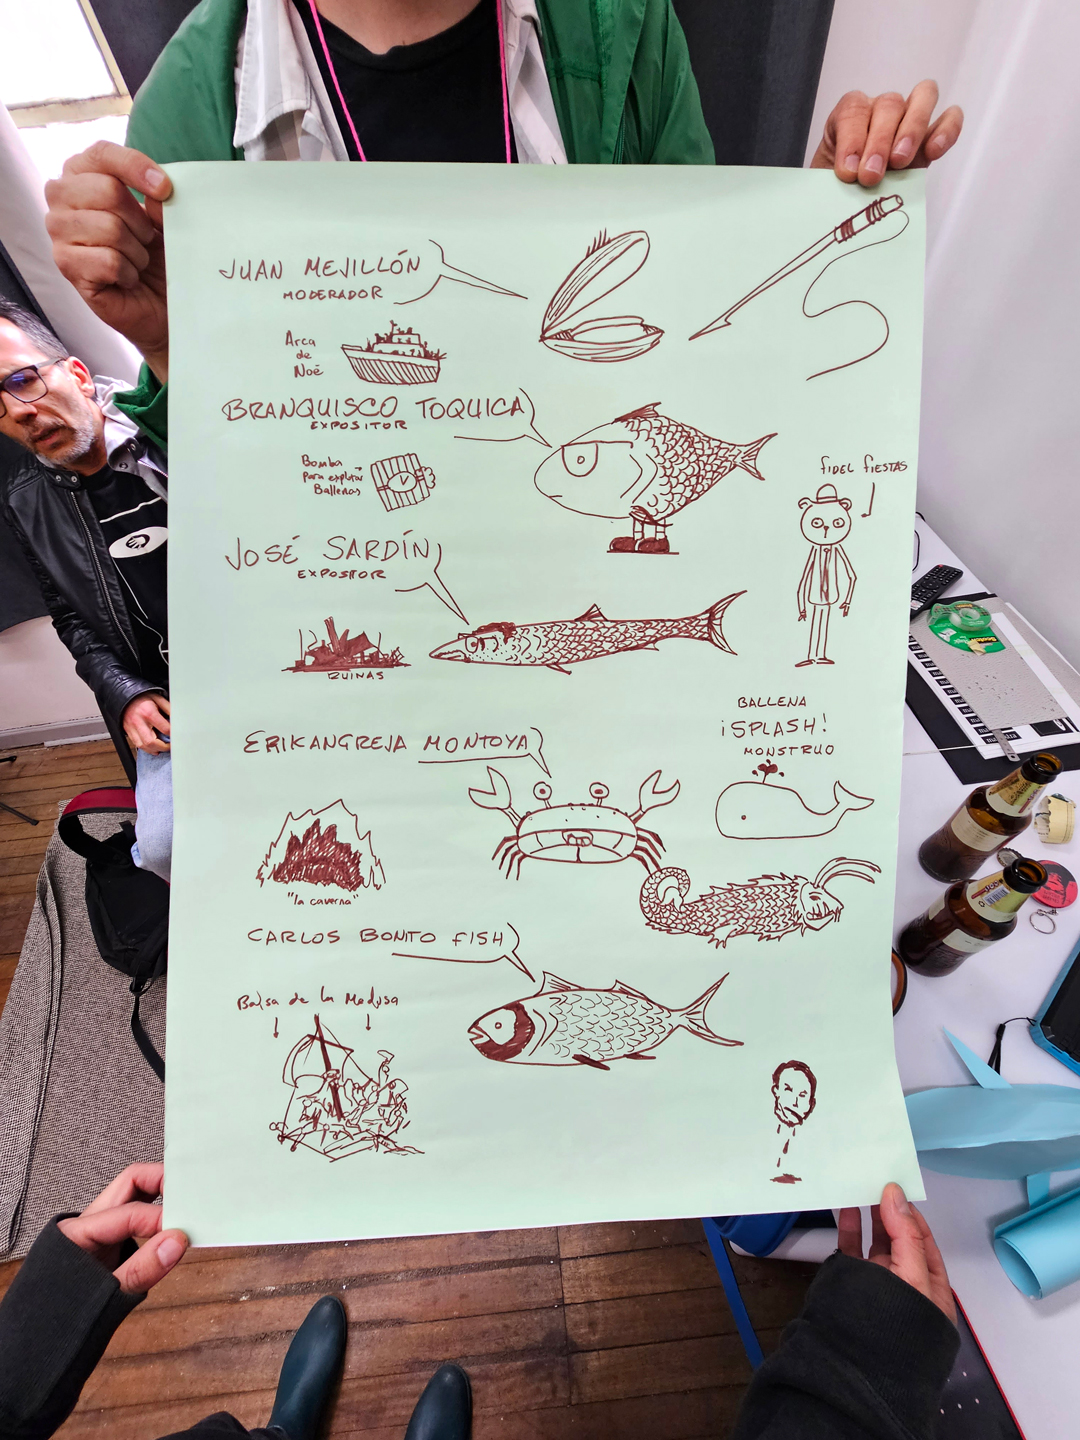 JUAN MEJILLÓN
MODERADOR
Arca
de
Noé
BRANQUISCO TOQUICA
EXPOSITOR
Bomba
para explotar
Ballenas
FIDEL FIESTAS
JOSÉ SARDÍN
EXPOSITOR
RUINAS
BALLENA
¡SPLASH!
MONSTRUO
ERIKANGREJA MONTOYA
"la caverna"
CARLOS BONITO FISH
Balsa de la Medusa